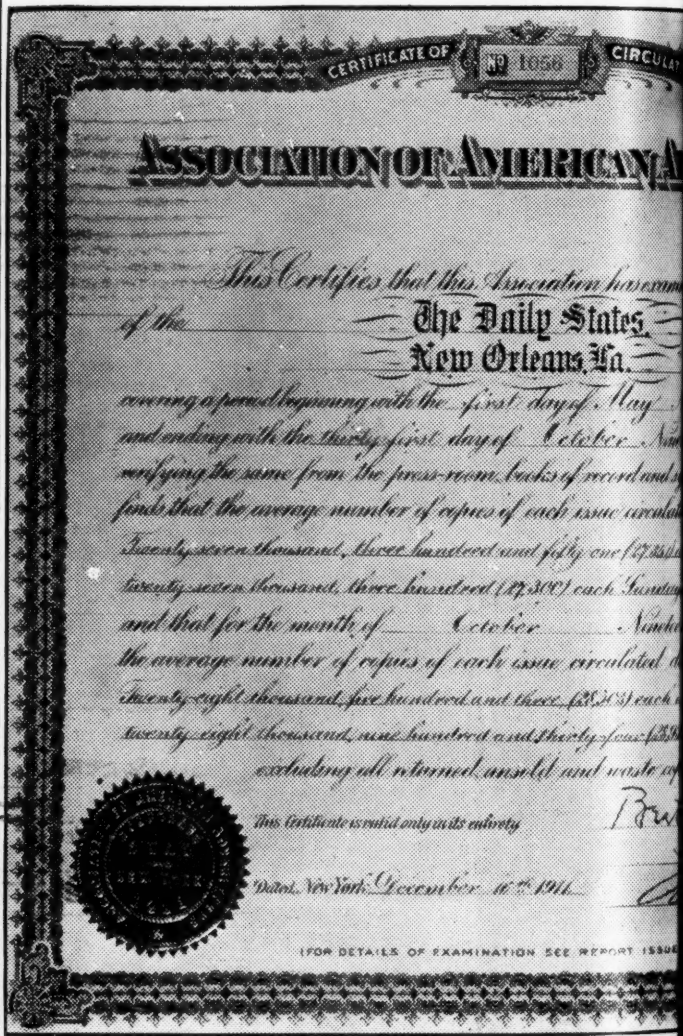 CERTIFICATE OF No 1056 CIRCULAT
ASSOCIATION OF AMERICAN A
This Certifies that this Association has exam
of the The Daily States,
New Orleans, La.
covering a period beginning with the first day of May
and ending with the thirty first day of October Nine
verifying the same from the press-room, books of record and
finds that the average number of copies of each issue circulat
Twenty seven thousand, three hundred and fifty one (27,351)
twenty seven thousand, three hundred (27,300) each Sunday
and that for the month of October Ninete
the average number of copies of each issue circulated d
Twenty eight thousand, five hundred and three (28,503) each
twenty eight thousand, nine hundred and thirty four (28,9
excluding all returned, unsold and waste cop
This Certificate is valid only in its entirety
Dated, New York, December 10th 1911
(FOR DETAILS OF EXAMINATION SEE REPORT ISSUE